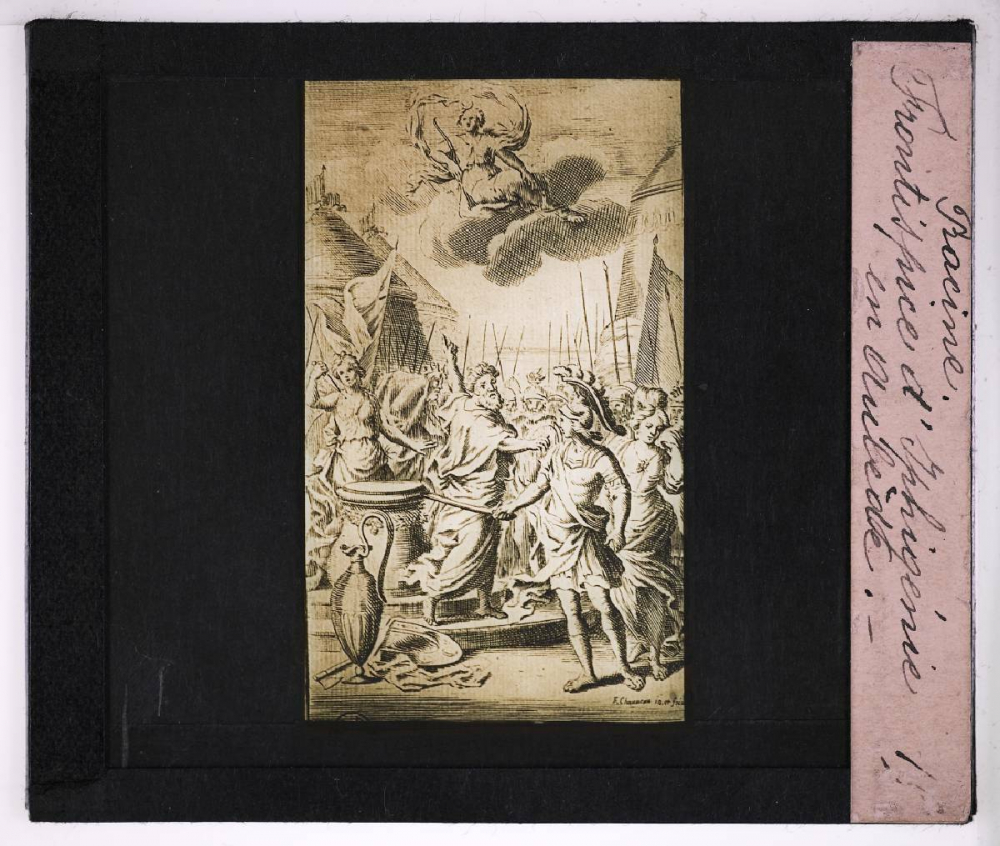 Racine.
Frontispice d'Iphigénie
en Aulide. -
F. Chauveau in. et fecit